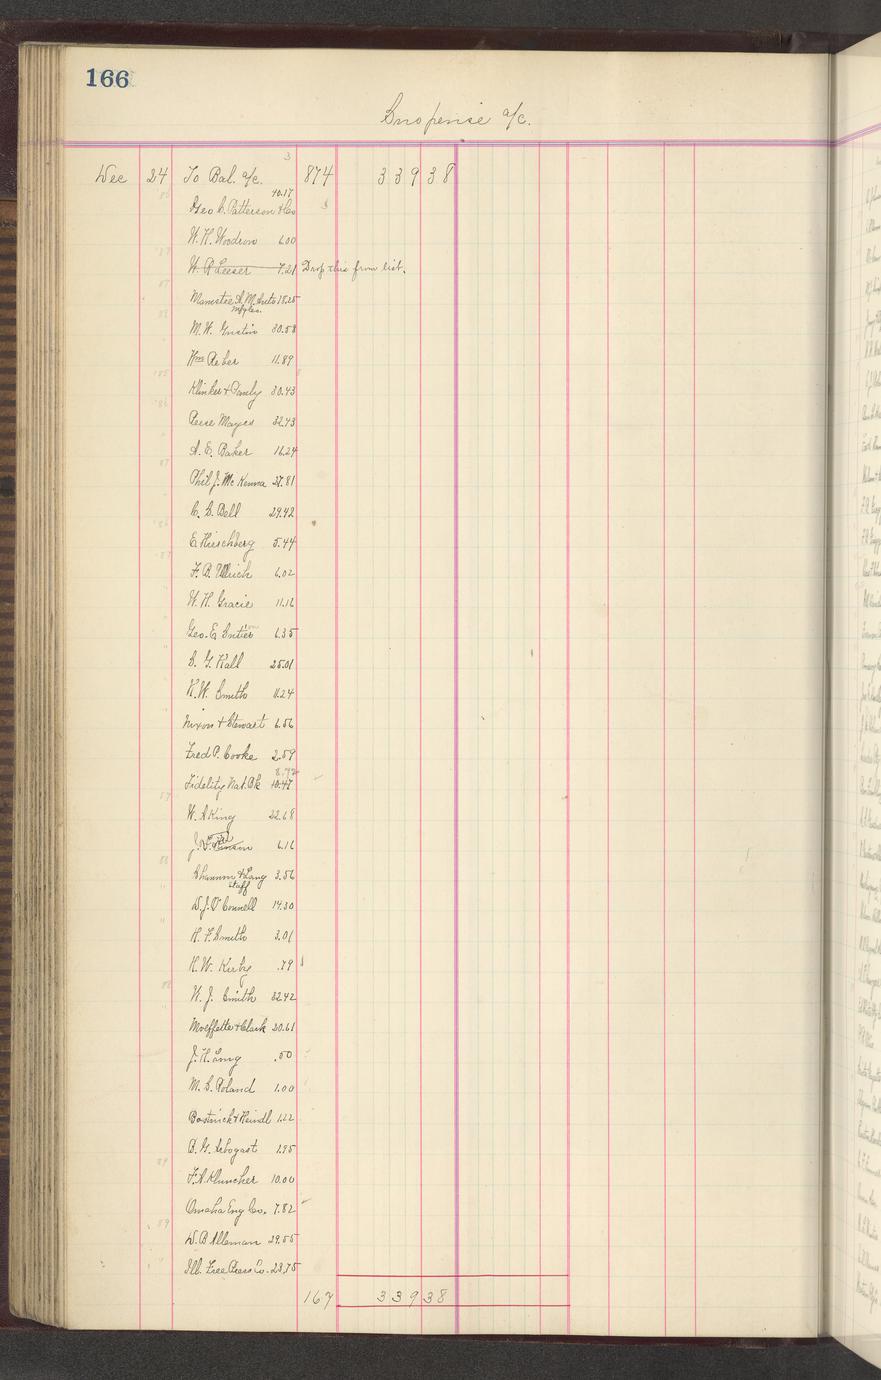 166
Suspense a/c.
3
Dec 24 To Bal. a/c. 874 339 38
40.17
Geo. C. Patterson & Co
W. H. Woodrow 6.00
W. R. Leeser 7.21 Drop this from list.
Manistee A. M. 18.25
mfgles.
M. W. Gustin 30.58
Wm Reber 11.89
Klinker & Pauly 30.43
Reese Mayes 32.43
A. E. Baker 16.24
Phil J. McKenna 27.81
C. S. Bell 29.42
E. Hirschberg 5.44
F. B. Ullrich 6.02
W. H. Gracie 11.16
Geo. E. 6.35
S. G. Hall 25.01
H. W. Smith 11.24
Nixon & Stewart 6.56
Fred P. Cooke 2.59
8.72
Fidelity Nat. Bk 10.47
W. A King 22.68
J. 6.16
Shannon & Long 3.56
staff
W. J. O'Connell 14.30
H. F. Smith 3.01
H. W. Kirby .79
W. J. Smith 32.42
Moeffette & Clark 20.61
J. H. Long .50
M. S. Roland 1.00
Bostwick & Heindl 1.22
B. G. Arbogast 1.95
F. A. Kluncher 10.00
Omaha Eng Co. 7.82
W. B Alleman 29.55
Ill. Free Press Co. 23.75
167 339 38